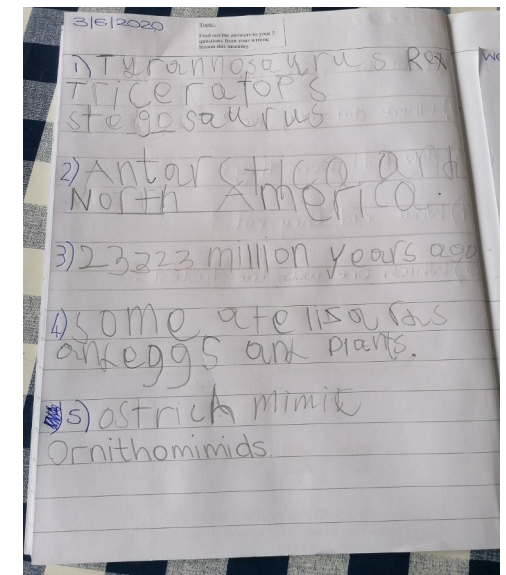 3/6/2020
Topic:
Find out the answers to your 5
questions from your writing
lesson this morning.
1) Tyrannosaurus Rex
Triceratops
stegosaurus
2) Antarctica and
North America.
3) 23223 million years ago
4) some ate lisards
and eggs and plants.
5) ostrich mimic
Ornithomimids.